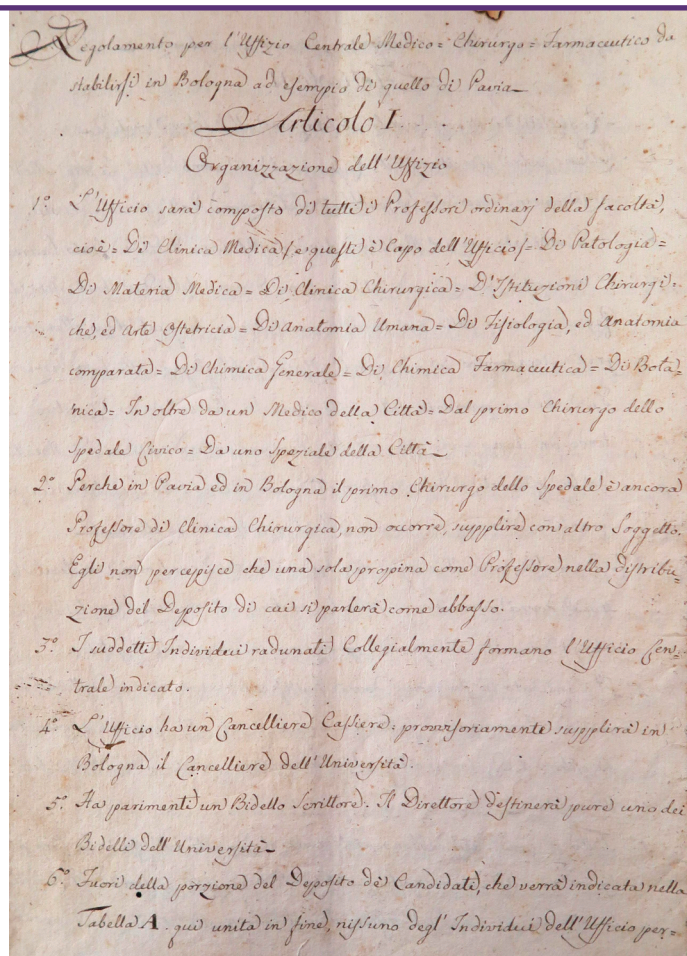 Regolamento per l'Uffizio Centrale Medico = Chirurgo = Farmaceutico da
stabilirsi in Bologna ad esempio di quello di Pavia_
Articolo I.
Organizzazione dell'Uffizio
1.º L'Ufficio sarà composto di tutti i Professori ordinarj della facoltà,
cioè = Di Clinica Medica /e questi è Capo dell'Ufficio/ = Di Patologia =
Di Materia Medica = Di Clinica Chirurgica = D'Istituzioni Chirurgi=
che, ed Arte Ostetricia = Di Anatomia Umana = Di Fisiologia, ed Anatomia
comparata = Di Chimica Generale = Di Chimica Farmaceutica = Di Bota=
nica = In oltre da un Medico della Città = Dal primo Chirurgo dello
Spedale Civico = Da uno Speziale della Città_
2.º Perche in Pavia ed in Bologna il primo Chirurgo dello Spedale è ancora
Professore di Clinica Chirurgica, non occorre, supplire con altro Soggetto.
Egli non percepisce che una sola propina come Professore nella distribu=
zione del Deposito di cui si parlerà come abbasso.
3.º I suddetti Individui radunati Collegialmente formano l'Ufficio Cen=
trale indicato.
4.º L'Ufficio ha un Cancelliere Cassiere: provvisoriamente supplirà in
Bologna il Cancelliere dell'Università.
5.º Ha parimenti un Bidello Scrittore. Il Direttore destinerà pure uno dei
Bidelli dell'Università_
6.º Fuori della porzione del Deposito de' Candidati, che verrà indicata nella
Tabella A. qui unita in fine, nissuno degl'Individui dell'Ufficio per=